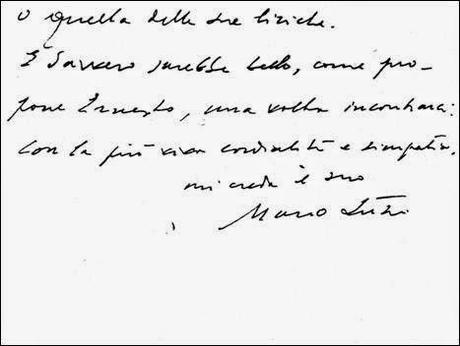 o quella delle sue liriche.
E davvero sarebbe bello, come pro-
pone Ernesto, una volta incontrarci.
Con la più viva cordialità e simpatia,
mi creda il suo
Mario Luzi